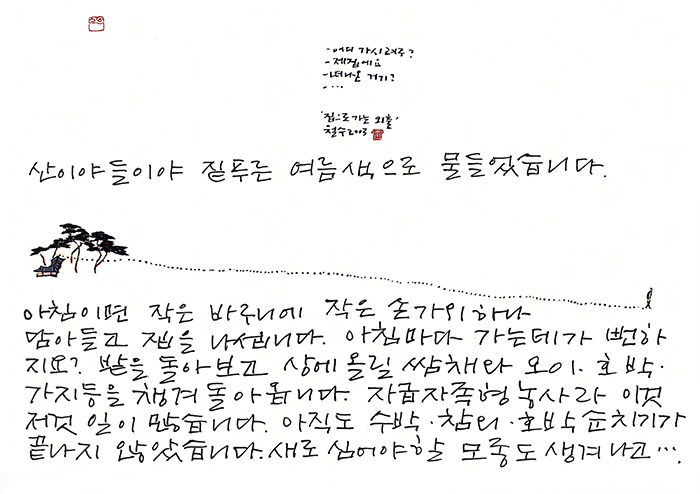 - 어디 가시려구?
- 제집에요
- 떠나온 거기?
- …
'집으로 가는 외출'
철수 2003
산이야 들이야 짙푸른 여름색으로 물들었습니다.
아침이면 작은 바구니에 작은 손가위 하나
담아들고 집을 나섭니다. 아침마다 가는데가 뻔하
지요? 밭을 돌아보고 상에 올릴 쌈채와 오이·호박·
가지등을 챙겨 돌아옵니다. 자급자족형 농사라 이것
저것 일이 많습니다. 아직도 수박·참외·호박 순치기가
끝나지 않았습니다. 새로 심어야할 모종도 생겨나고….